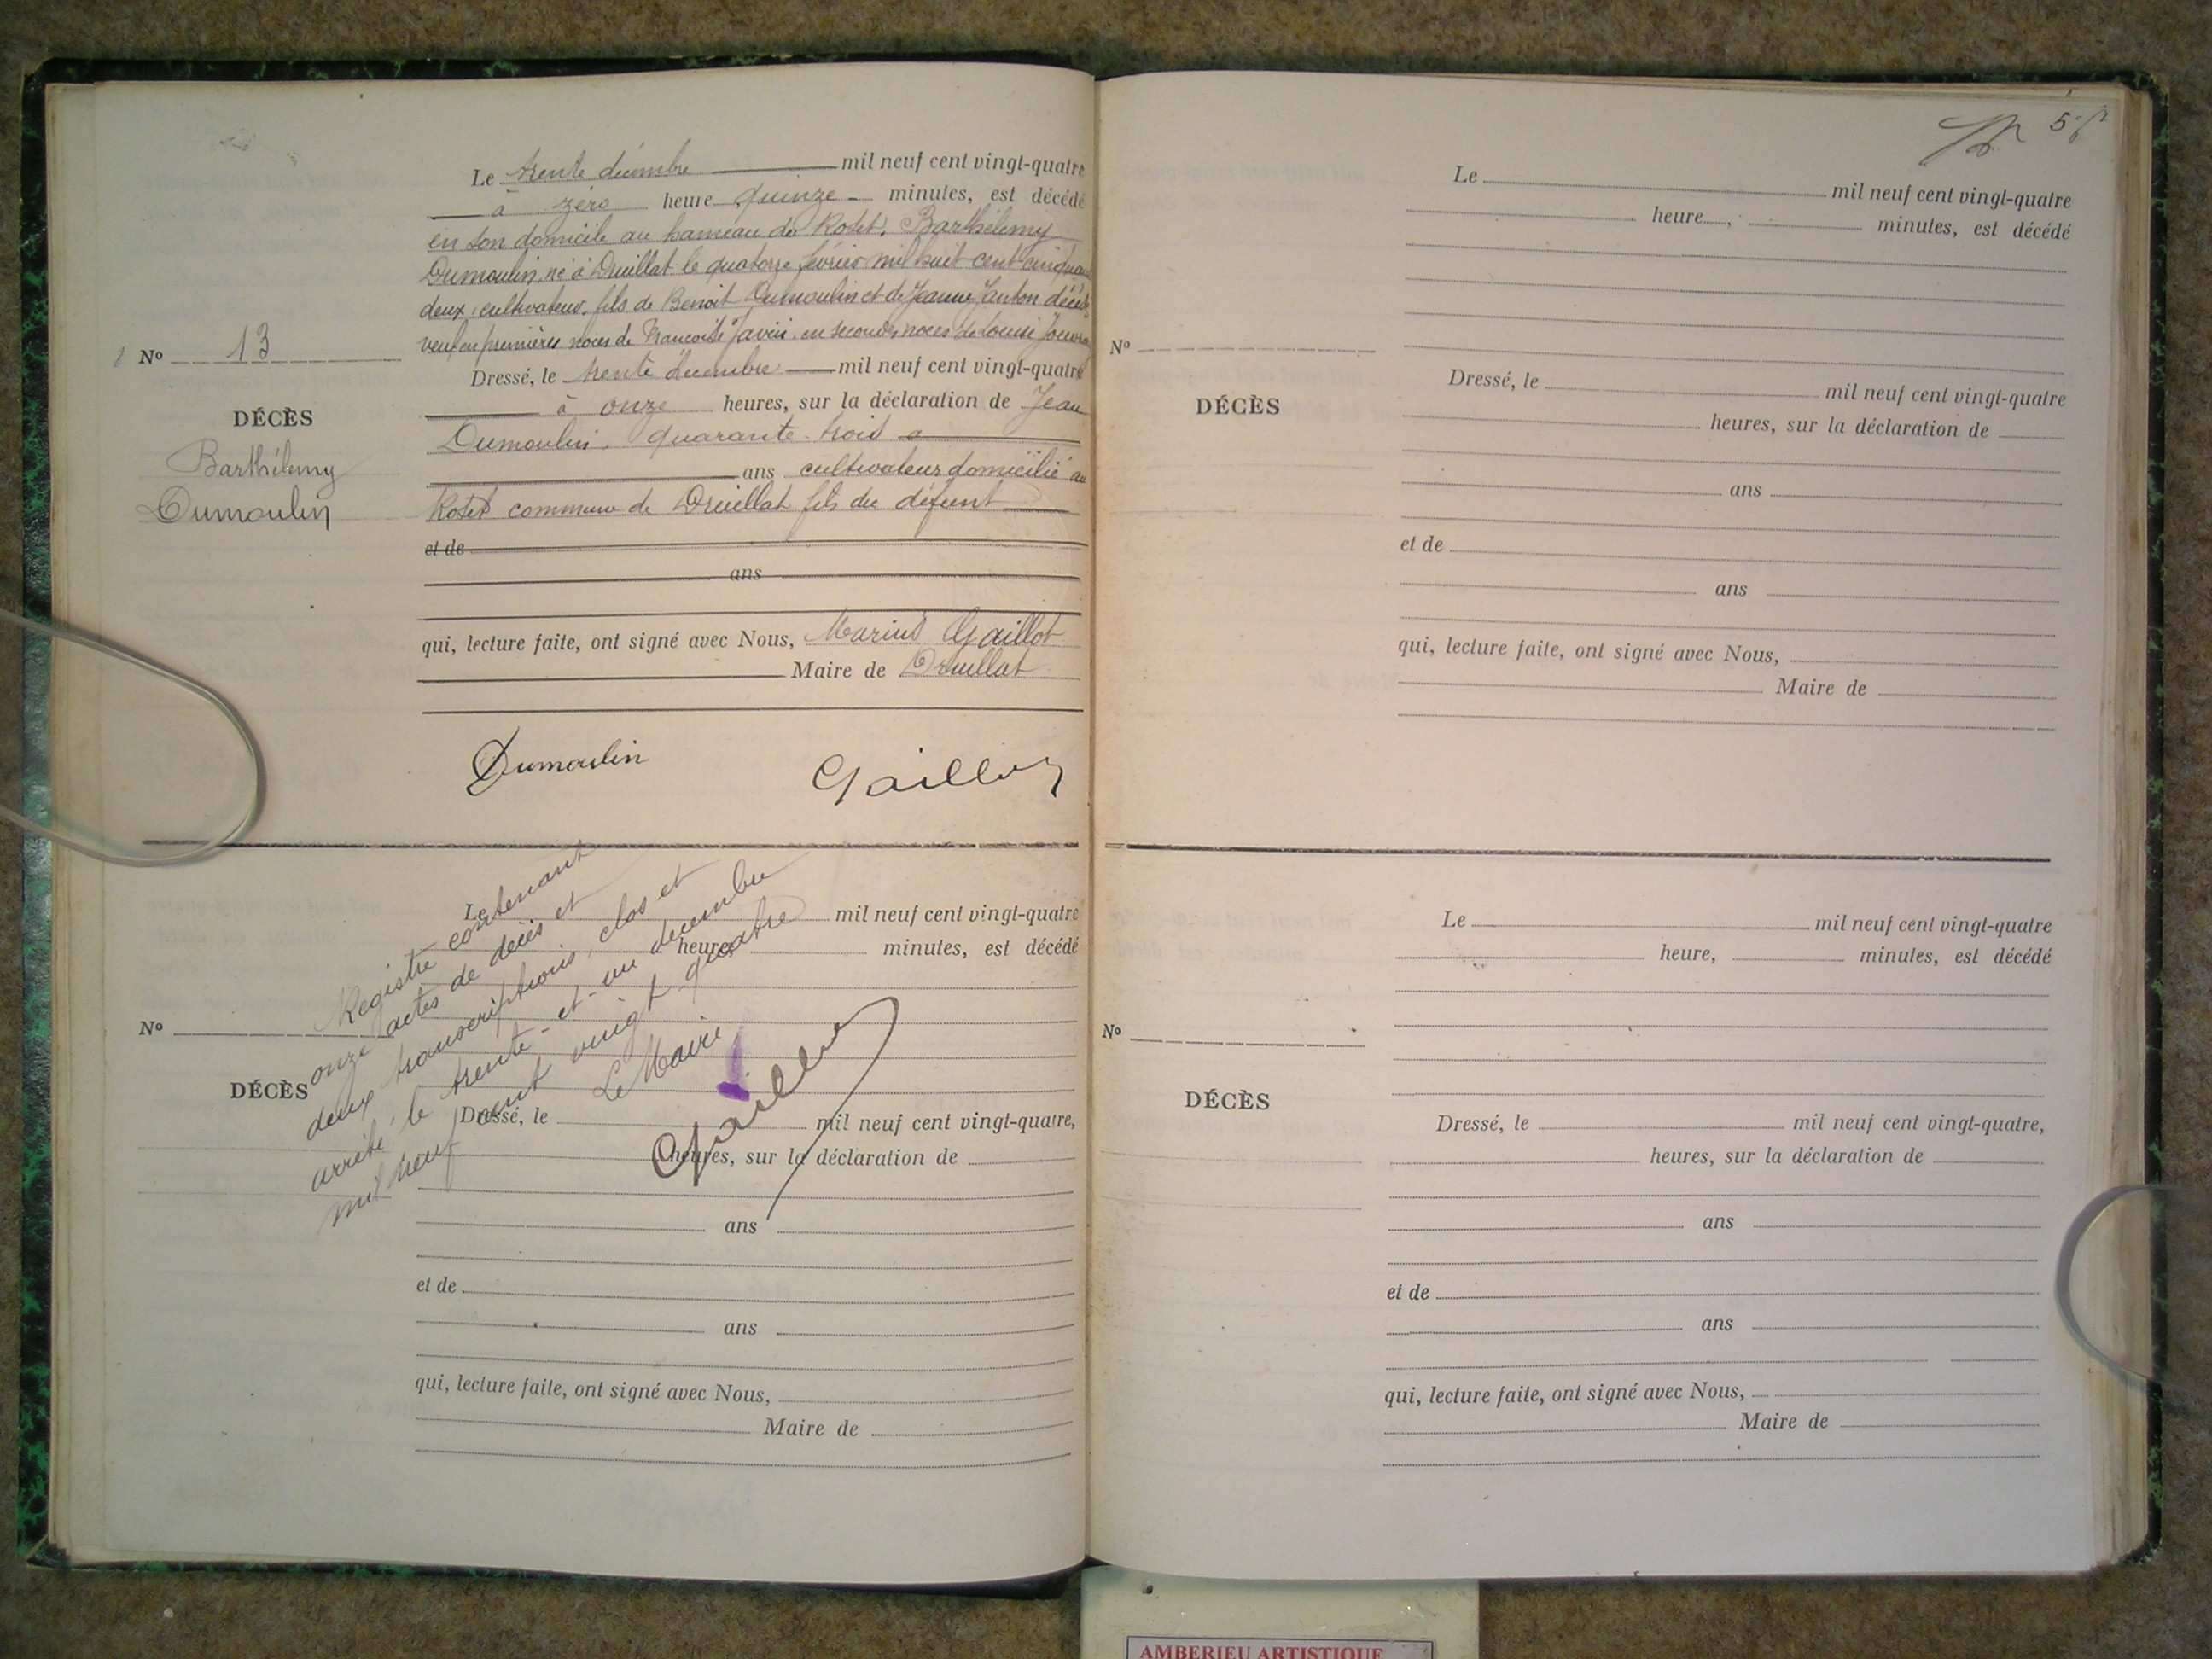 Le trente décembre mil neuf cent vingt-quatre
à zéro heure quinze minutes, est décédé
en son domicile au hameau du Roset, Barthélemy
Dumoulin, né à Druillat le quatorze février mil huit cent cinquante
deux, cultivateur, fils de Benoit Dumoulin et de Jeanne Janton décédés
veuf en premières noces de Françoise en secondes noces de Louise
Nº 13
DÉCÈS
Barthélemy
Dumoulin
Dressé, le trente décembre mil neuf cent vingt-quatre
à onze heures, sur la déclaration de Jean
Dumoulin, quarante-trois
ans cultivateur domicilié au
Roset commune de Druillat fils du défunt
et de
ans
qui, lecture faite, ont signé avec Nous, Marius Gaillot
Maire de Druillat
Dumoulin Gaillot
Le mil neuf cent vingt-quatre
heure minutes, est décédé
Nº
DÉCÈS
Dressé, le mil neuf cent vingt-quatre,
heures, sur la déclaration de
ans
et de
ans
qui, lecture faite, ont signé avec Nous,
Maire de
Registre contenant
onze actes de décès et
deux transcriptions, clos et
arrêté, le trente-et-un décembre
mil neuf cent vingt quatre
Le Maire
Gaillot
5
Le mil neuf cent vingt-quatre
heure, minutes, est décédé
Nº
DÉCÈS
Dressé, le mil neuf cent vingt-quatre
heures, sur la déclaration de
ans
et de
ans
qui, lecture faite, ont signé avec Nous,
Maire de
Le mil neuf cent vingt-quatre
heure, minutes, est décédé
Nº
DÉCÈS
Dressé, le mil neuf cent vingt-quatre,
heures, sur la déclaration de
ans
et de
ans
qui, lecture faite, ont signé avec Nous,
Maire de
AMBERIEU ARTISTIQUE